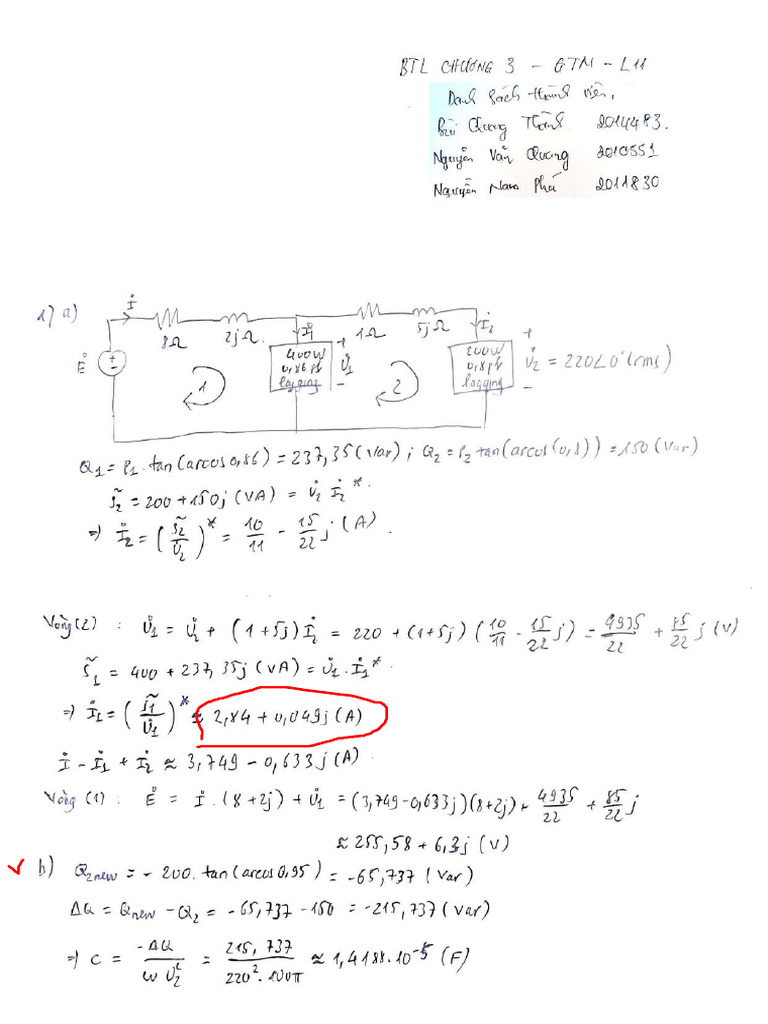 BTL CHƯƠNG 3 - GTM - L11
Danh sách thành viên.
Bùi Quang Thành 2014483.
Nguyễn Văn Quang 2010551
Nguyễn Nam Phú 2011830
1) a)
İ
8Ω 2jΩ. İ1 1Ω 5jΩ İ2
E̊ + - 400W 0,86 pf lagging + U̇1 - 200W 0,8 pf lagging + U̇2 = 220∠0° (rms) -
1 2
Q1 = P1.tan(arcos0,86) = 237,35 (Var) ; Q2 = P2 tan(arcos(0,8)) = 150 (Var)
S̃2 = 200 + 150j (VA) = U̇2 İ2*.
=> İ2 = (S̃2/U̇2)* = 10/11 - 15/22 j (A)
Vòng (2) : U̇1 = U̇2 + (1+5j) İ2 = 220 + (1+5j) (10/11 - 15/22 j) = 4935/22 + 85/22 j (V)
S̃1 = 400 + 237,35j (VA) = U̇1.İ1*.
=> İ1 = (S̃1/U̇1)* ≈ 2,84 + 0,049j (A)
İ = İ1 + İ2 ≈ 3,749 - 0,633j (A)
Vòng (1) : E̊ = İ.(8+2j) + U̇1 = (3,749-0,633j)(8+2j) + 4935/22 + 85/22 j
≈ 255,58 + 6,3j (V)
b) Q2new = - 200.tan(arcos0,95) = -65,737 (Var)
ΔQ = Qnew - Q2 = -65,737 - 150 = -215,737 (Var)
=> C = -ΔQ/ωU2² = 215,737/220².100π ≈ 1,4188.10⁻⁵ (F)